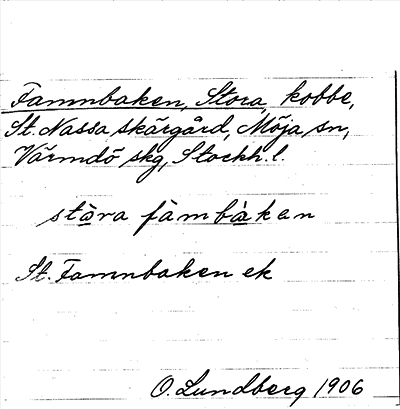 Famnbaken, Stora, kobbe,
St. Nassa skärgård, Möja sn,
Värmdö skg, Stockh. l.
stòra fàmbàkan
St. Famnbaken ek
O. Lundberg 1906